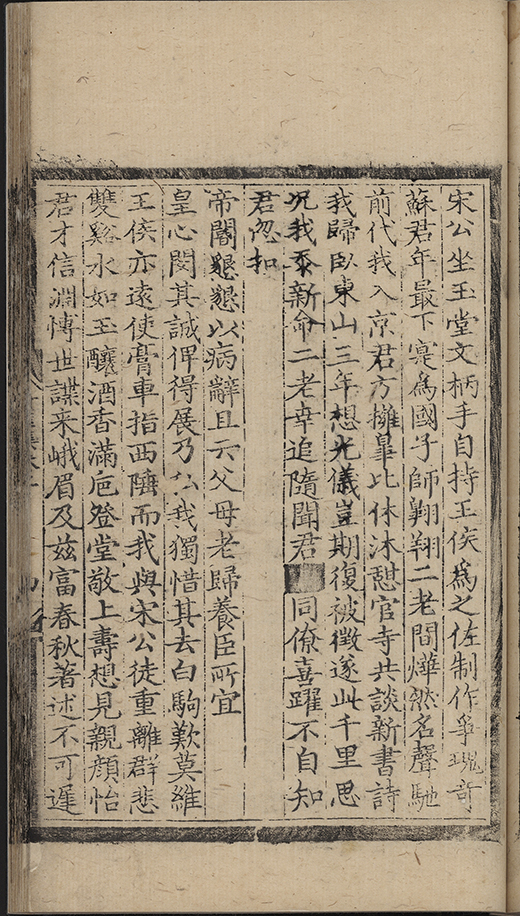 宋公坐玉堂文柄手自持王侯為之佐制作爭瑰奇
蘇君年最下寔為國子師翱翔二老間燁然名聲馳
前代我入京君方擁皐比休沐憇官寺共談新書詩
我歸臥東山三年想光儀豈期復被徵遂此千里思
况我忝新命二老幸追隨聞君同僚喜躍不自知
君忽扣
帝閽懇懇以病辭且云父母老歸養臣所宜
皇心閔其誠俾得展乃私我獨惜其去白駒歎莫維
王侯亦遠使膏車指西陲而我與宋公徒重離群悲
雙谿水如玉釀酒香滿巵登堂敬上壽想見親顏怡
君才信淵愽世謀来峨眉及兹富春秋著述不可遲